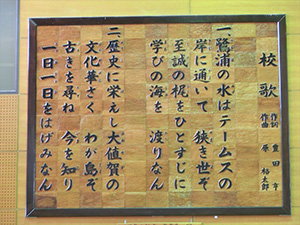 校歌
作詞 豊田 亨
作曲 原 裕太郎
一、鷺浦の水はテームスの
岸に通いて 狭き世ぞ
至誠の梶をひとすじに
学びの海を 渡りなん
二、歴史に栄えし大値賀の
文化華さく わが島ぞ
古きを尋ね 今を知り
一日一日をはげみなん